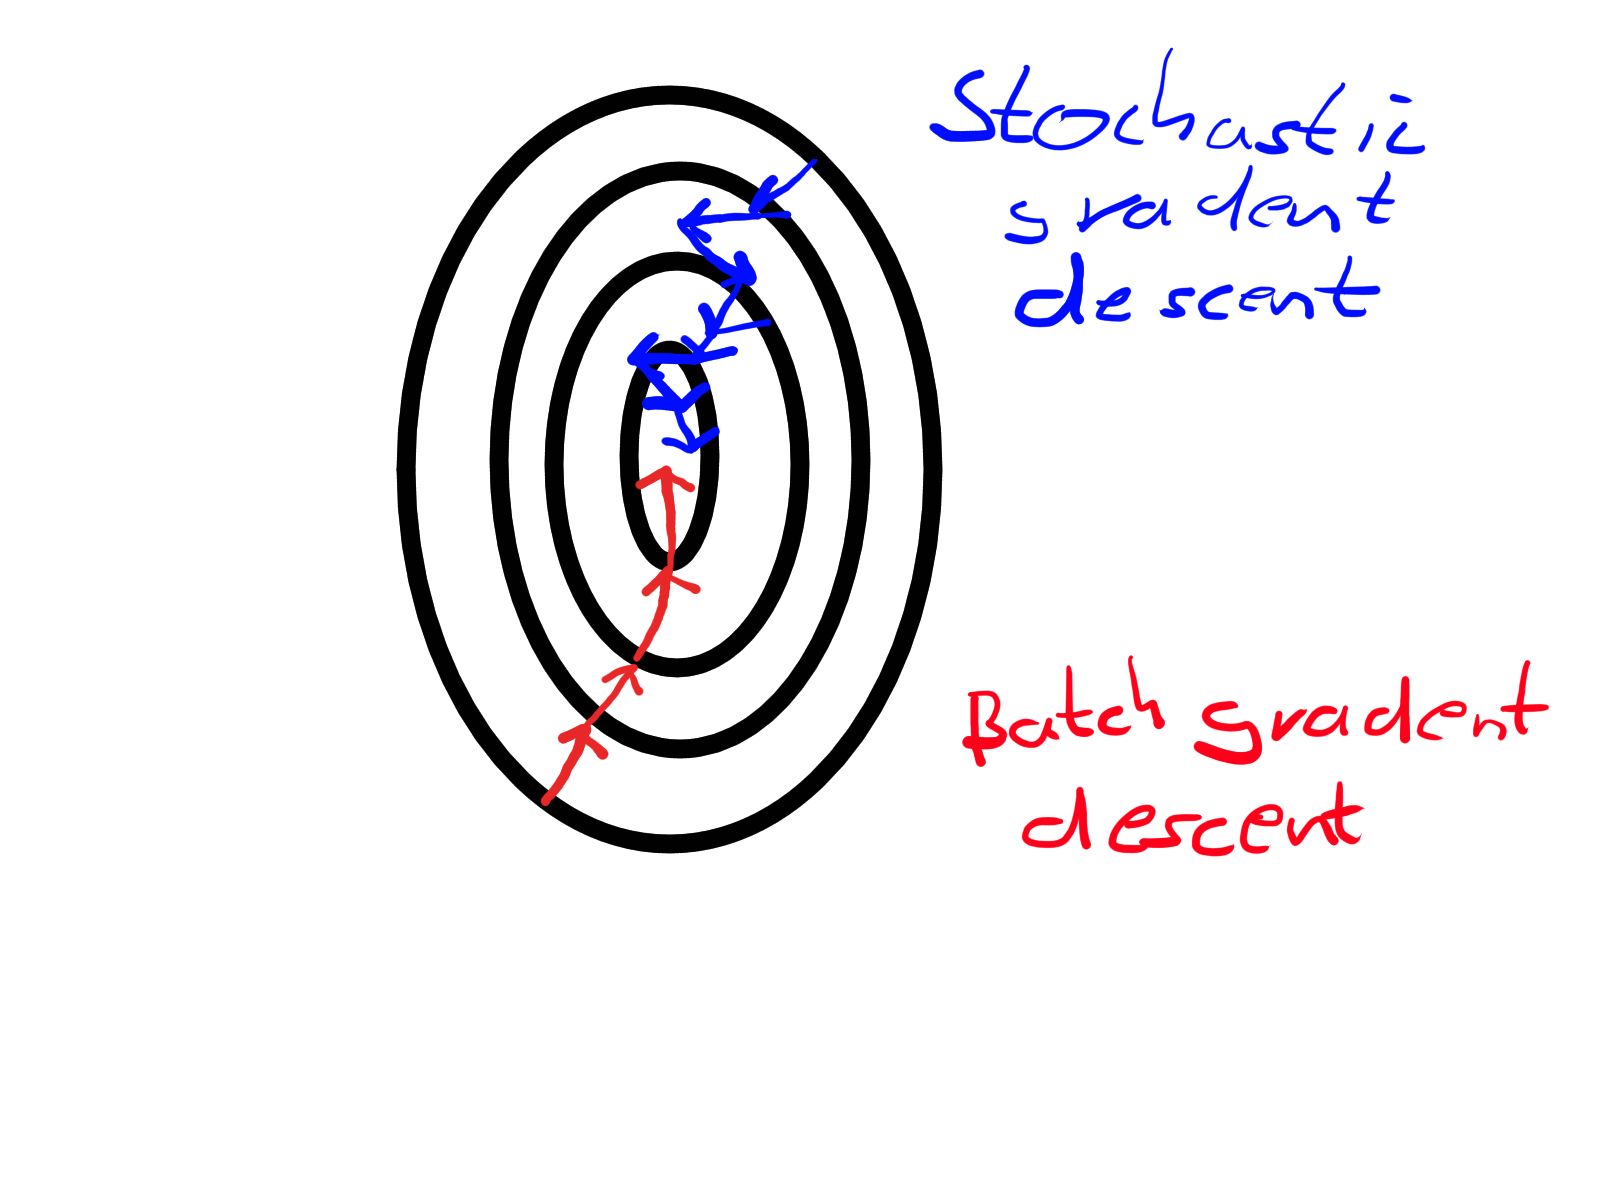 Stochastic
gradent
descent
Batch gradent
descent